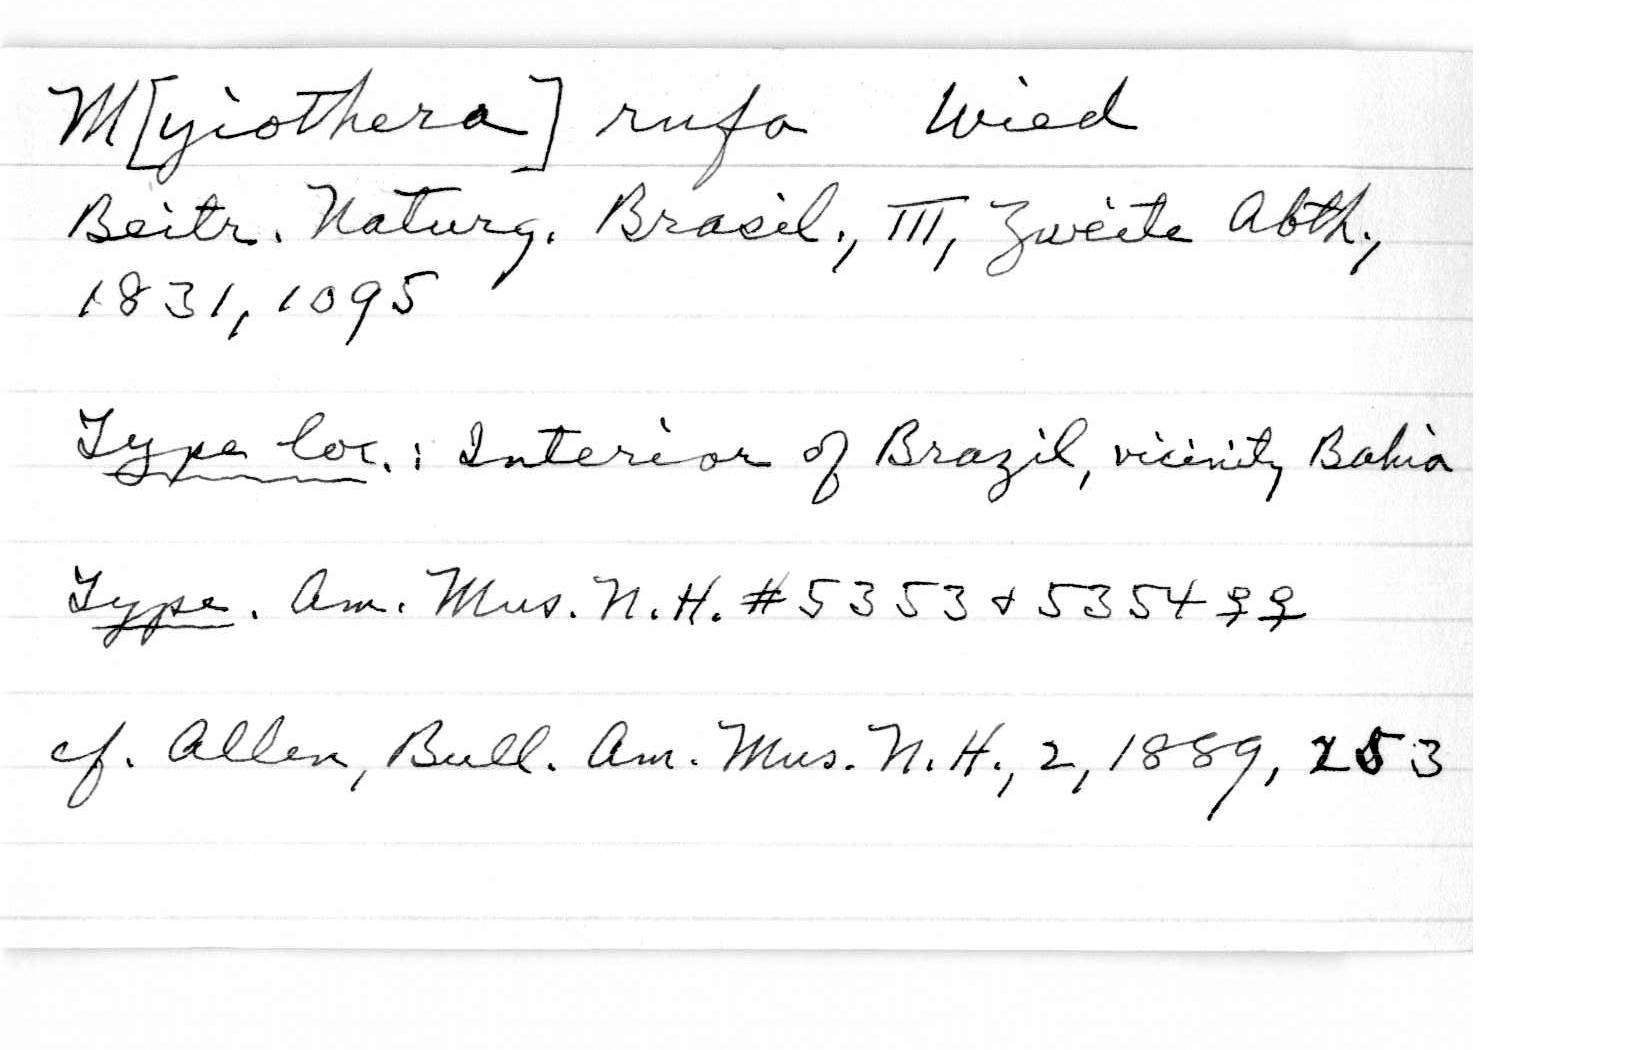 M[yiothera] rufa Wied
Beitr. Naturg. Brasil., III, Zweite Abth.,
1831, 1095
Type loc.: Interior of Brazil, vicinity Bahia
Type. Am. Mus. N.H. #5353 & 5354 ♀♀
cf. Allen, Bull. Am. Mus. N.H., 2, 1889, 253